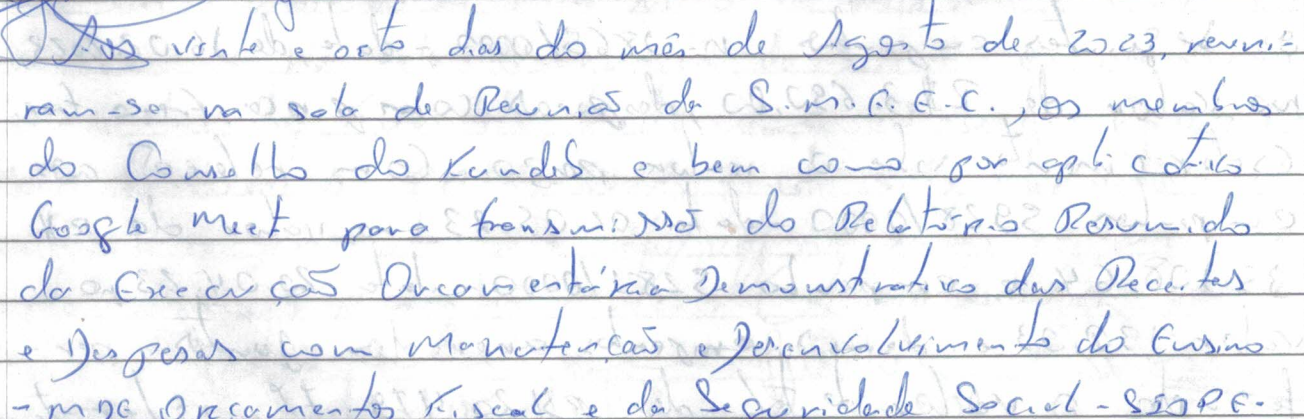 Aos vinte e oito dias do mês de Agosto de 2023, reuni-
ram-se na sala de Reunião da S.M.E.E.C., os membros
do Conselho do Fundeb e bem como por aplicativo
Google Meet para transmissão do Relatório Resumido
da Execução Orçamentária Demonstrativo das Receitas
e Despesas com Manutenção e Desenvolvimento do Ensino
-MDE Orçamentos Fiscal e da Seguridade Social - SIOPE-